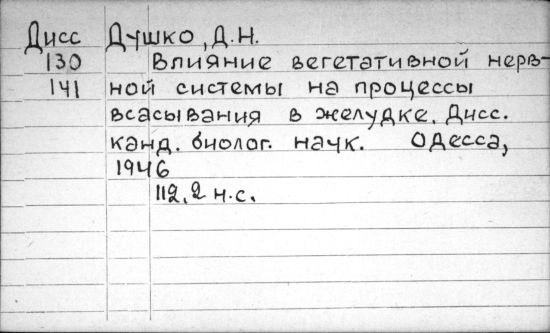 Дисс Душко, Д.Н.
130 Влияние вегетативной нерв-
141 ной системы на процессы
всасывания в желудке. Дисс.
канд. биолог. наук. Одесса,
1946
112, 2 н.с.